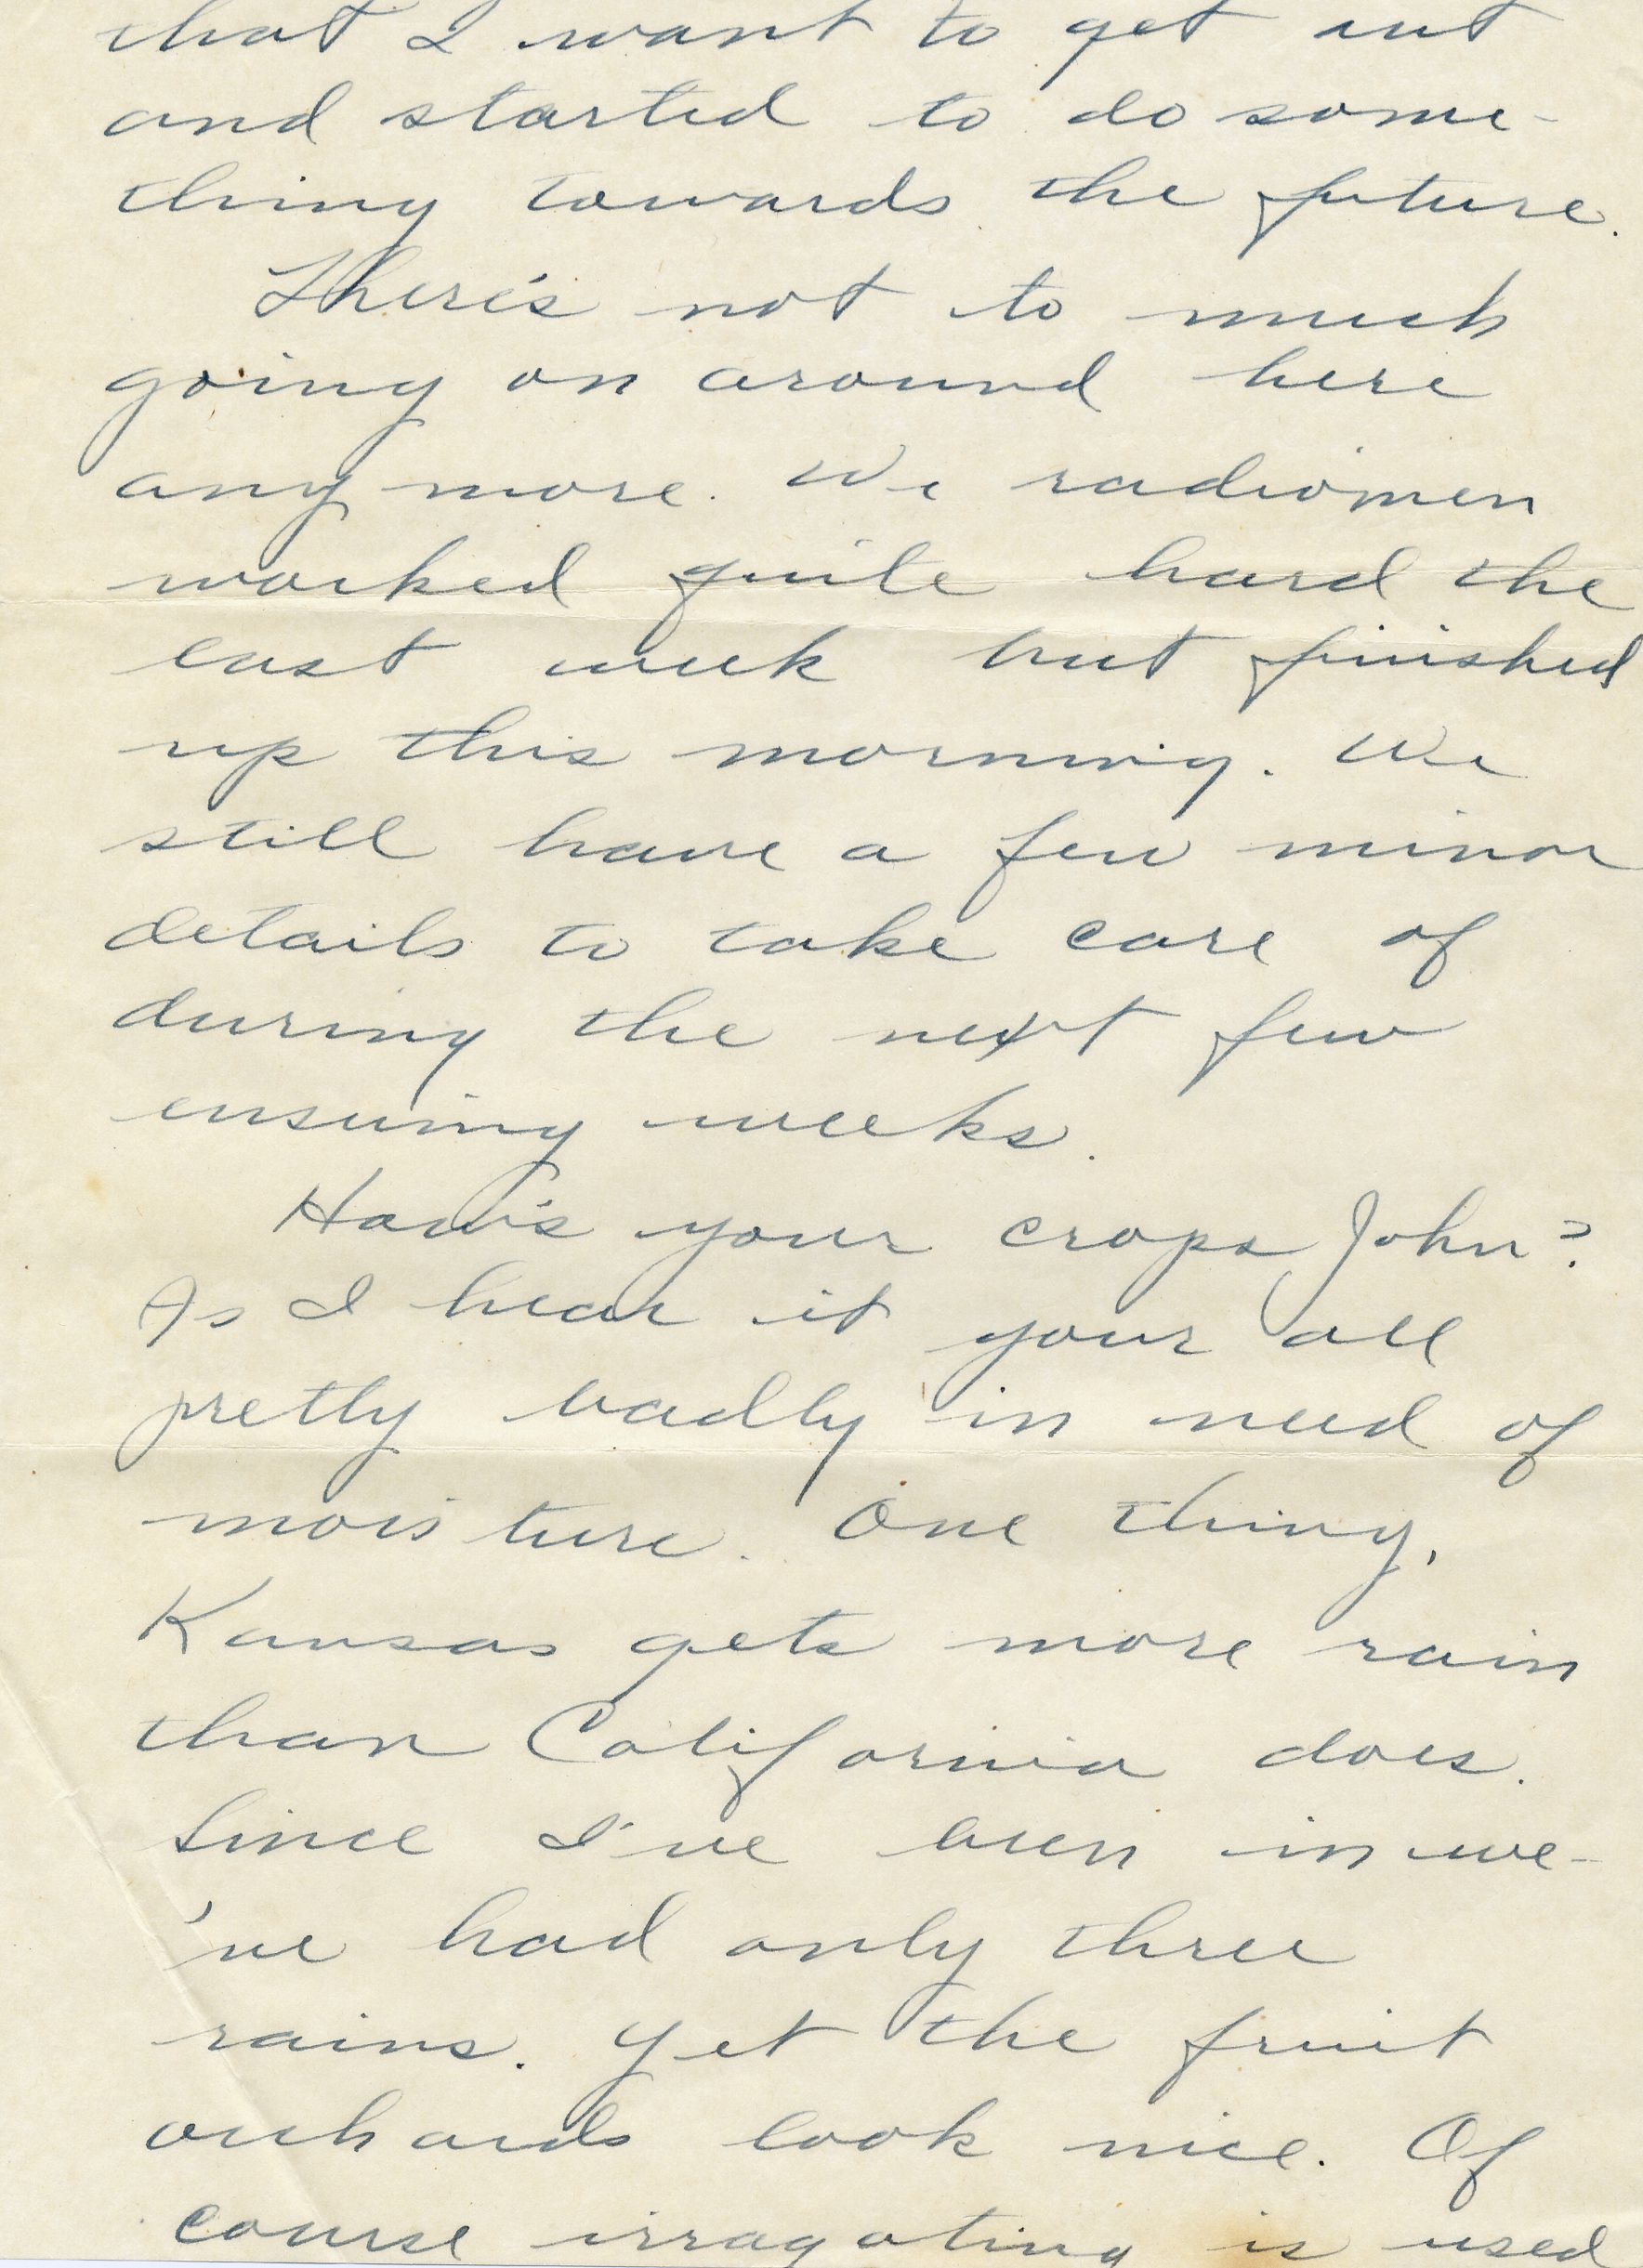 that I want to get out
and started to do some-
thing towards the future.
There's not to much
going on around here
any more. We radiomen
worked quite hard the
last week but finished
up this morning. We
still have a few minor
details to take care of
during the next few
ensuing weeks.
How's your crops John?
As I hear it your all
pretty badly in need of
moisture. One thing,
Kansas gets more rain
than California does.
Since I've been in we-
've had only three
rains. Yet the fruit
orchards look nice. Of
course irragating is used